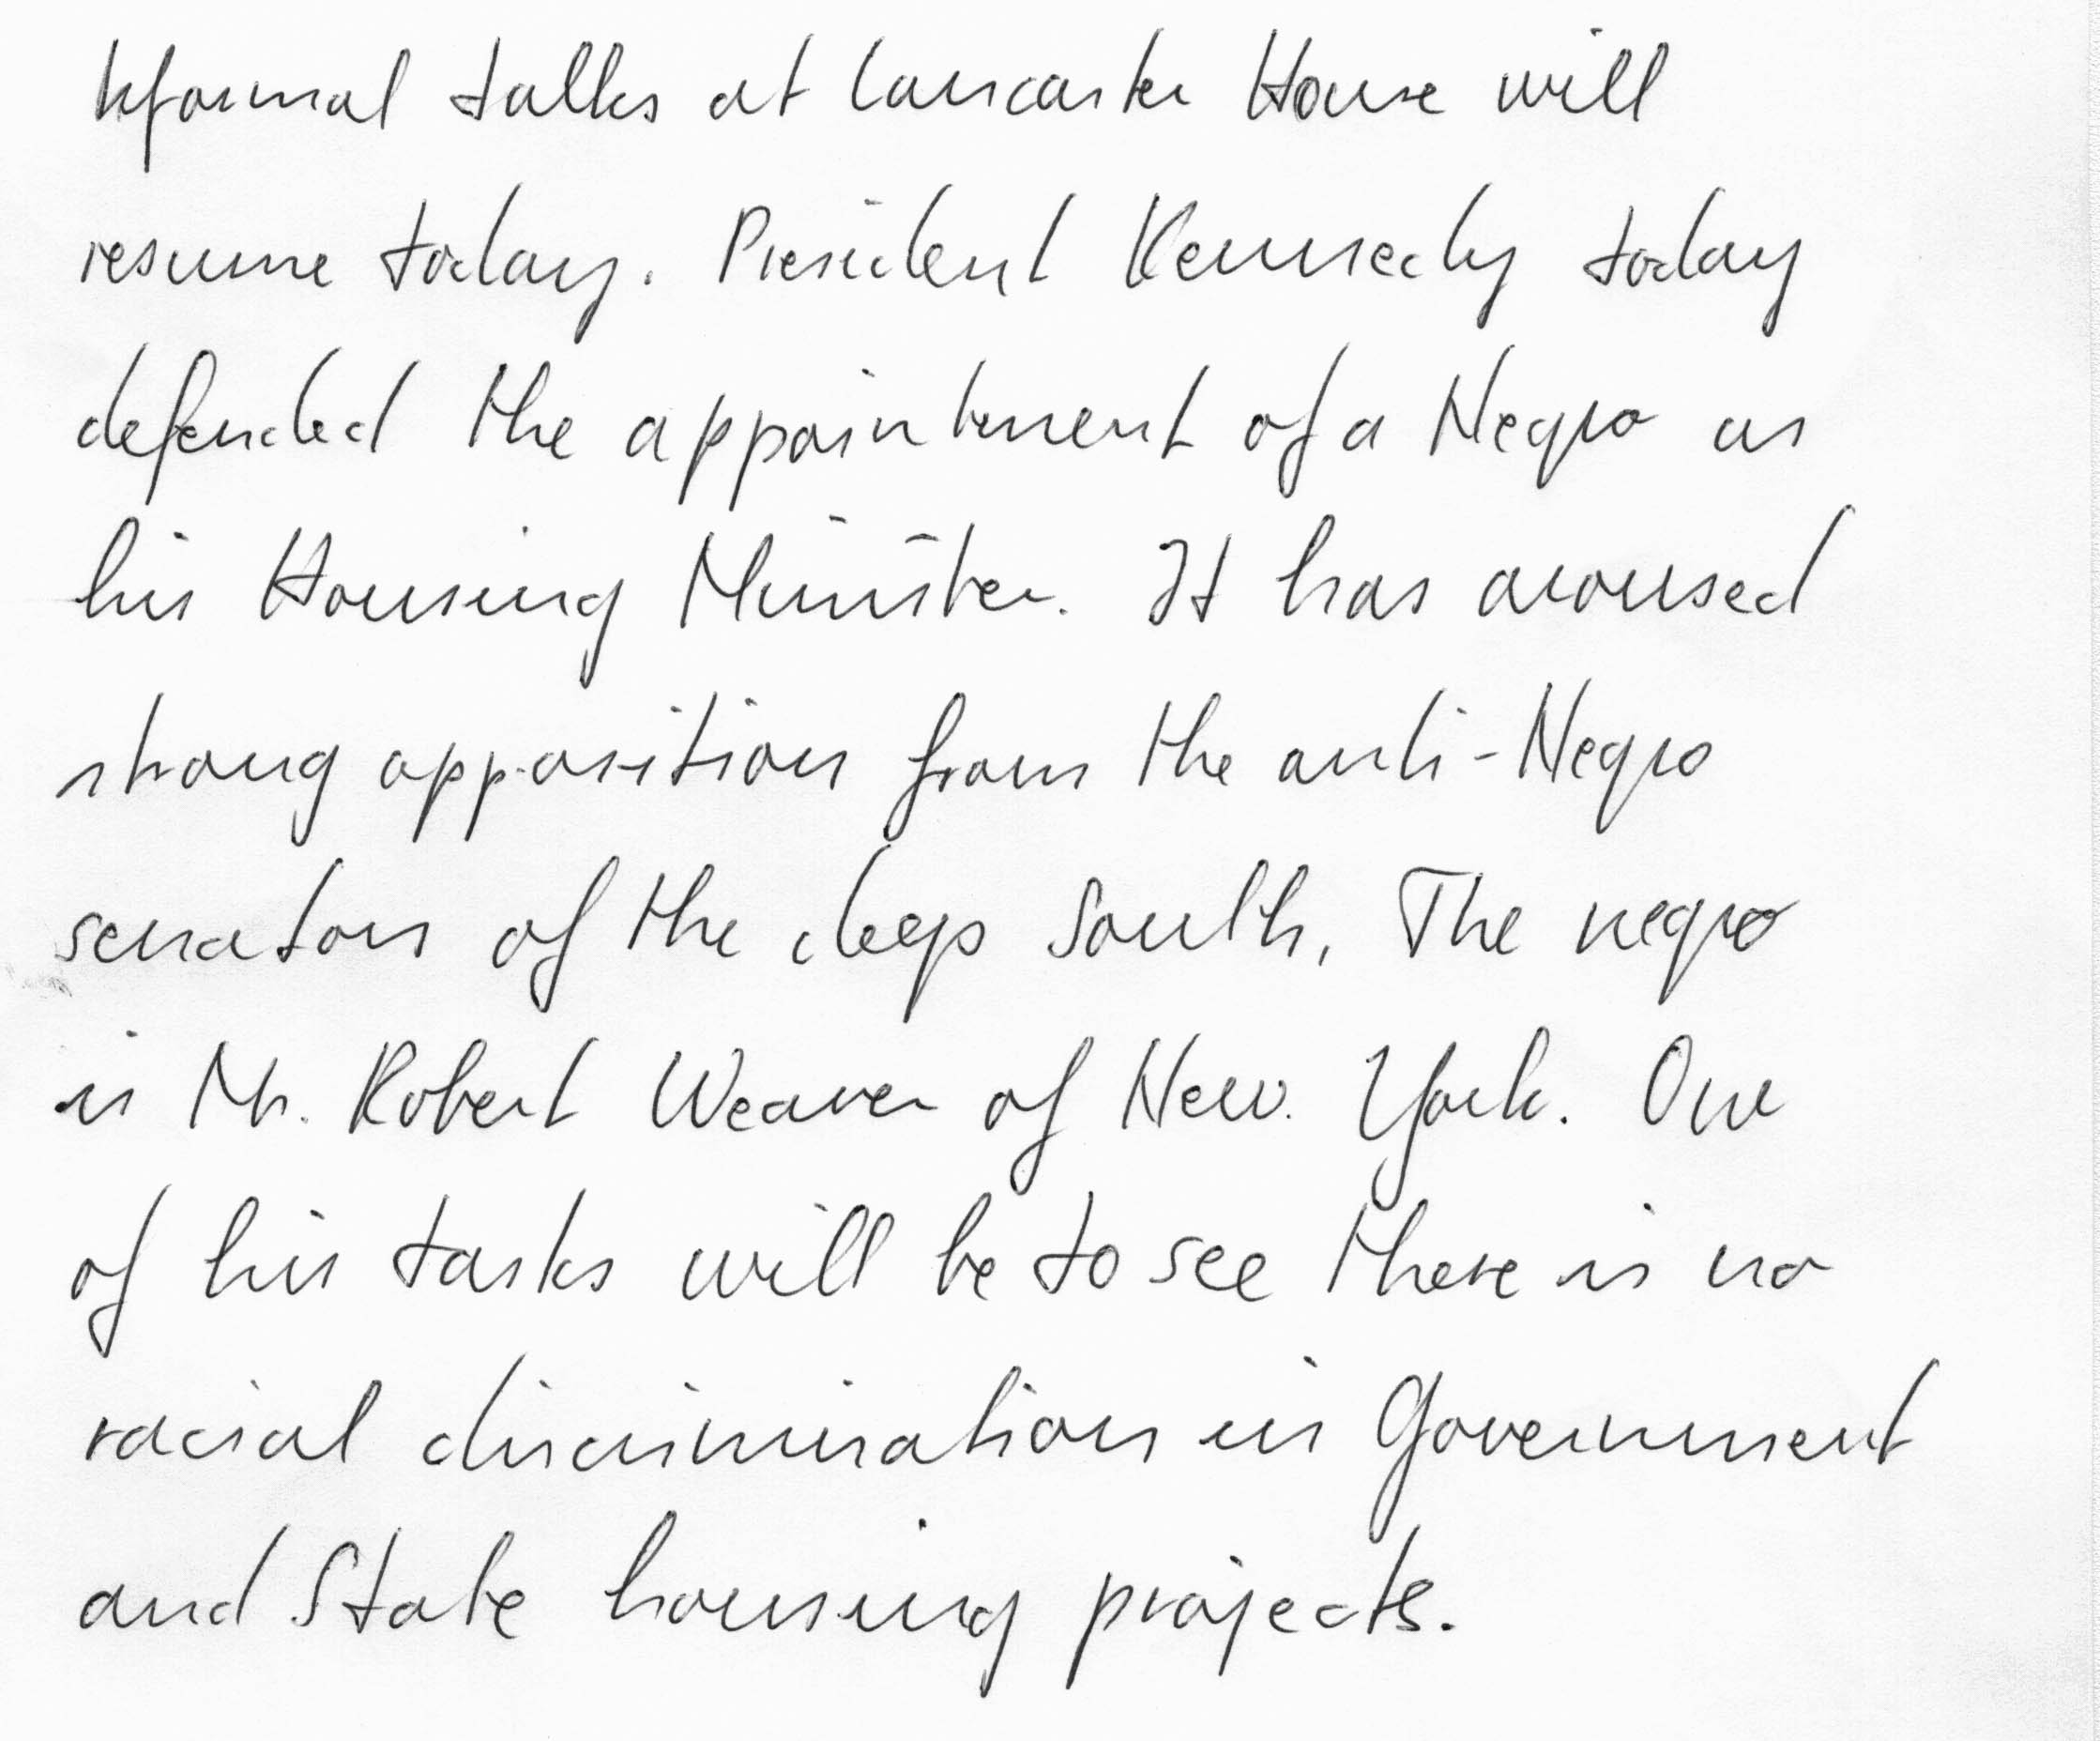 Informal talks at Lancaster House will
resume today. President Kennedy today
defended the appointment of a Negro as
his Housing Minister. It has aroused
strong opposition from the anti-Negro
senators of the deep South. The negro
is Mr. Robert Weaver of New York. One
of his tasks will be to see there is no
racial discrimination in Government
and State housing projects.